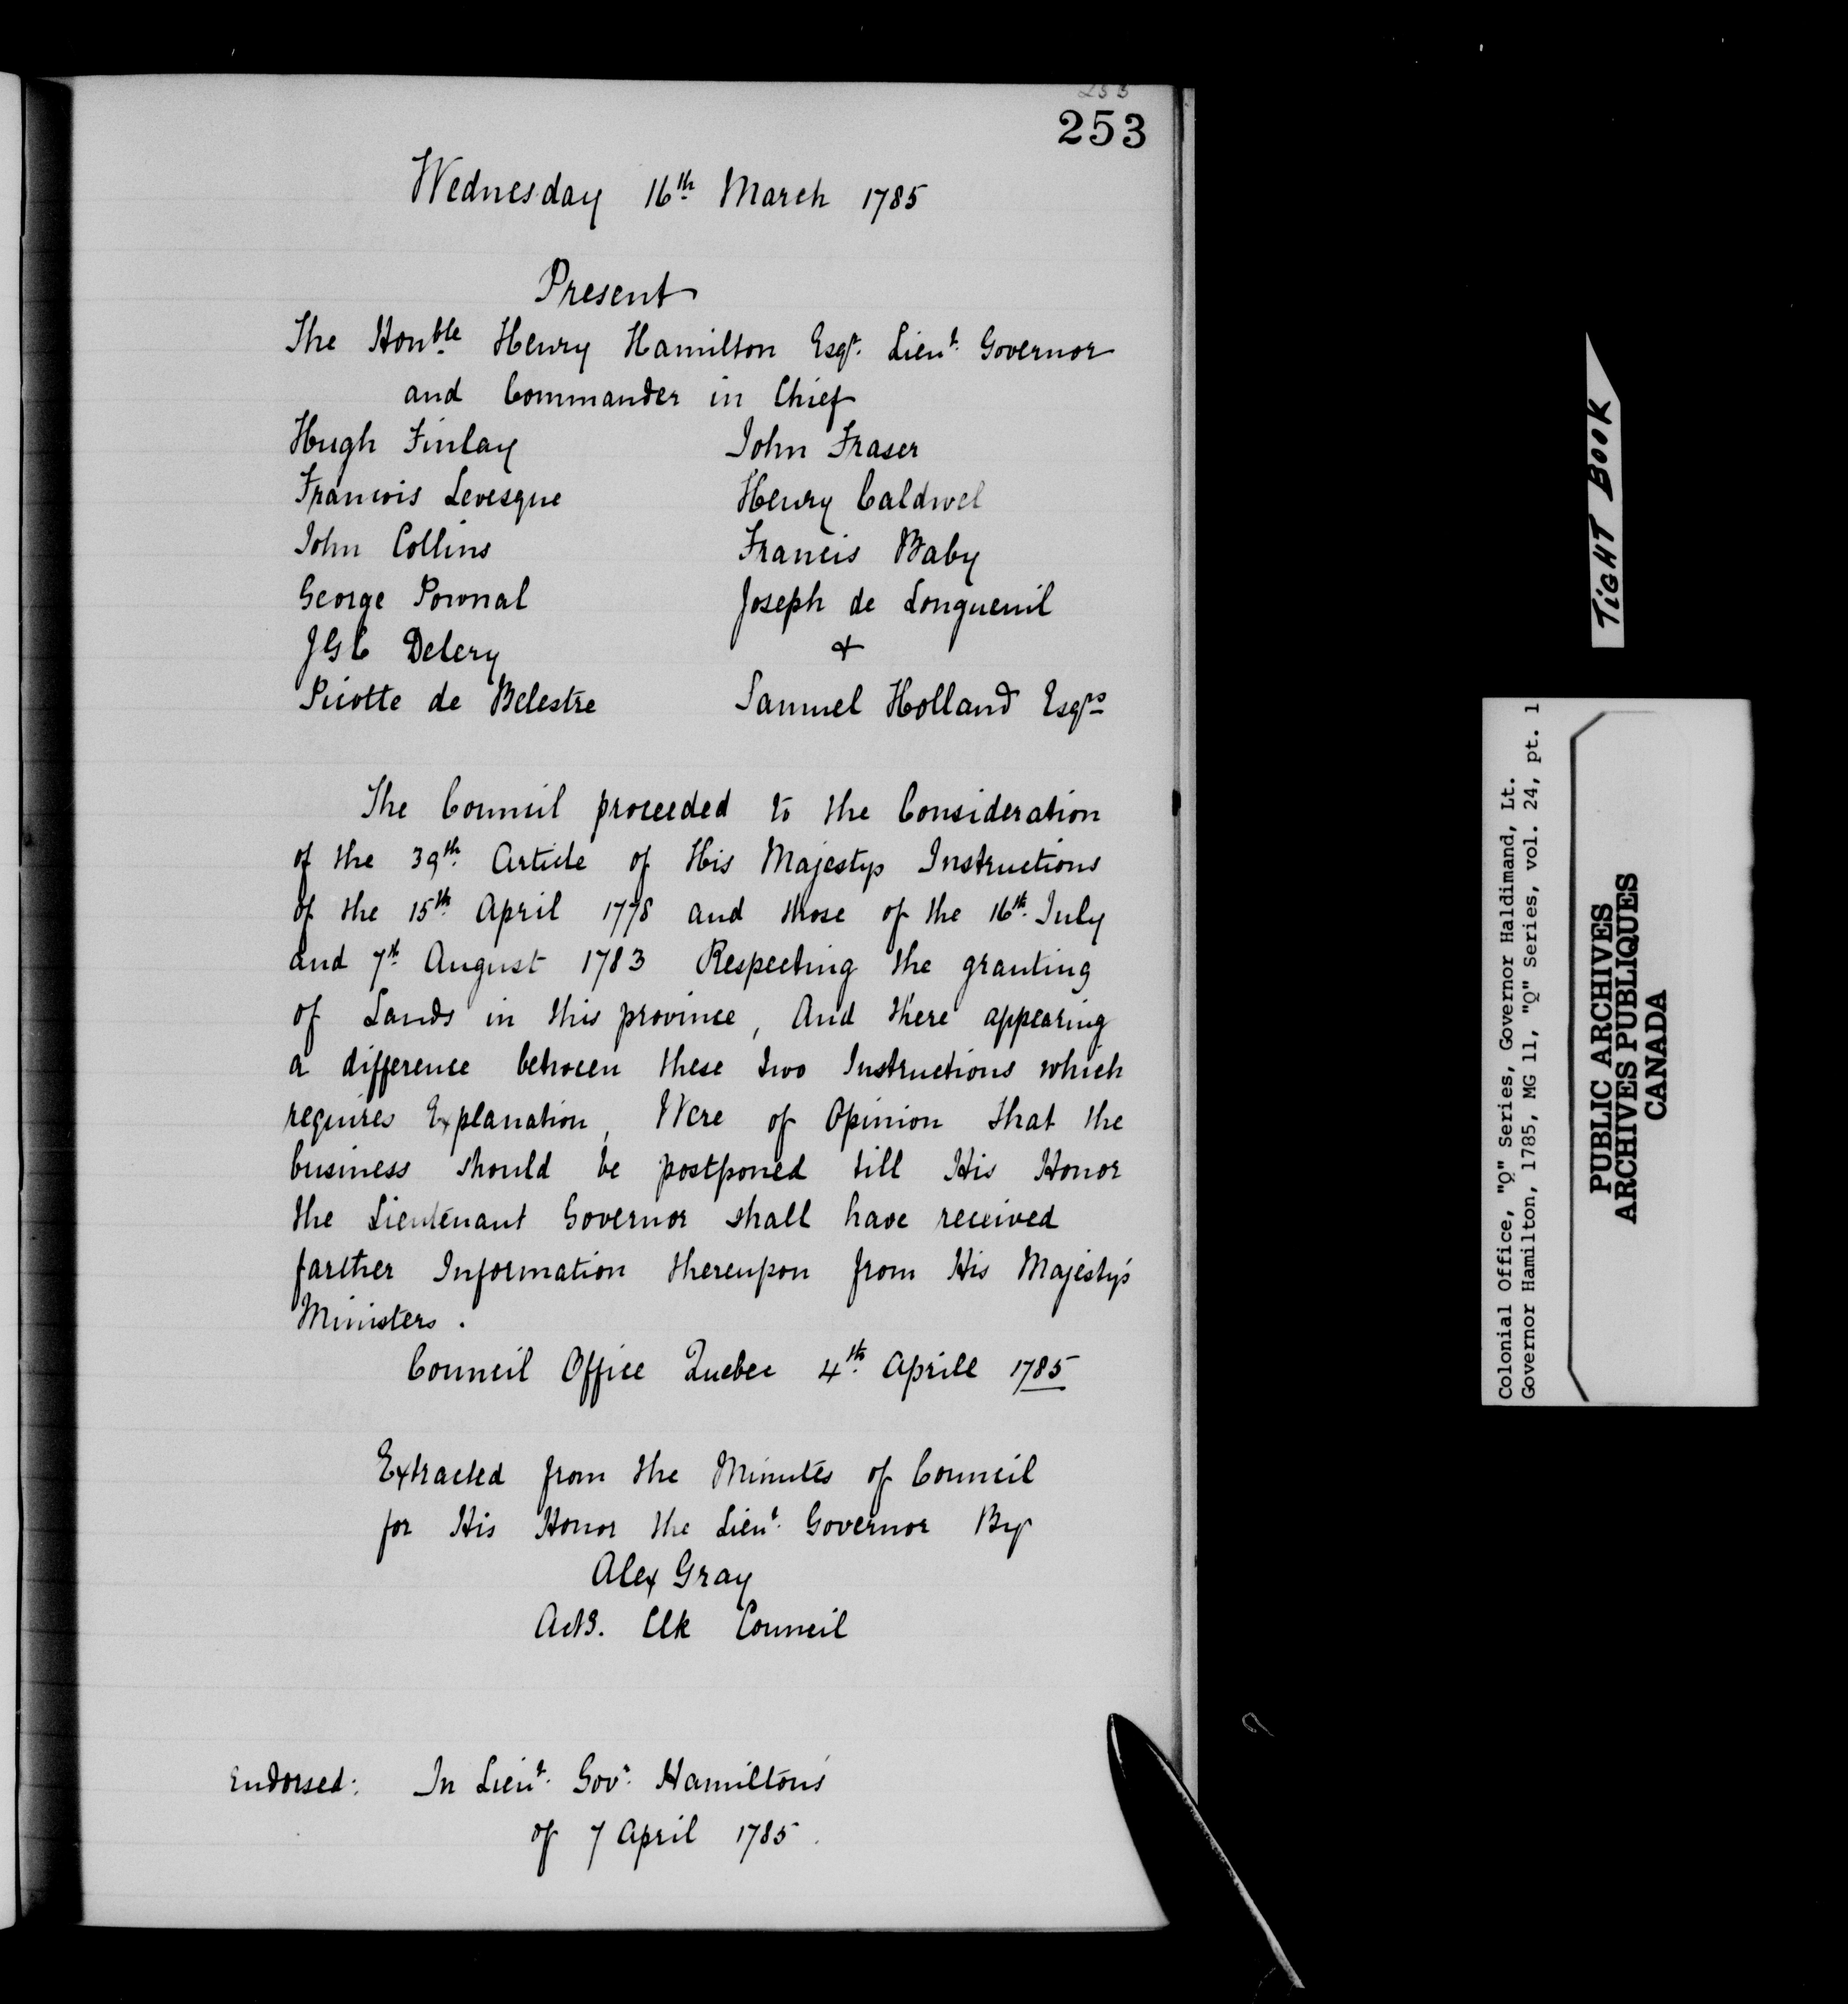 253
253
Wednesday 16th March 1785
Present
The Honble Henry Hamilton Esqr. Lieut. Governor
and Commander in Chief
Hugh Finlay John Fraser
Francois Levesque Henry Caldwel
John Collins Francis Baby
George Pownal Joseph de Longueuil
JGC Delery &
Picotte de Belestre Samuel Holland Esqrs
The Council proceeded to the Consideration
of the 39th. Article of His Majestys Instructions
of the 15th. April 1778 and those of the 16th. July
and 7th. August 1783 Respecting the granting
of Lands in this province, And there appearing
a difference between these two Instructions which
requires Explanation, Were of Opinion that the
business should be postponed till His Honor
the Lieutenant Governor shall have received
farther Information thereupon from His Majesty's
Ministers.
Council Office Quebec 4th. Aprill 1785
Extracted from the Minutes of Council
for His Honor the Lieut. Governor By
Alex Gray
Act3. Clk Council
Endorsed: In Lieut. Govr. Hamilton's
of 7 April 1785.
TIGHT BOOK
Colonial Office, "Q" Series, Governor Haldimand, Lt.
Governor Hamilton, 1785, MG 11, "Q" Series, vol. 24, pt. 1
PUBLIC ARCHIVES
ARCHIVES PUBLIQUES
CANADA